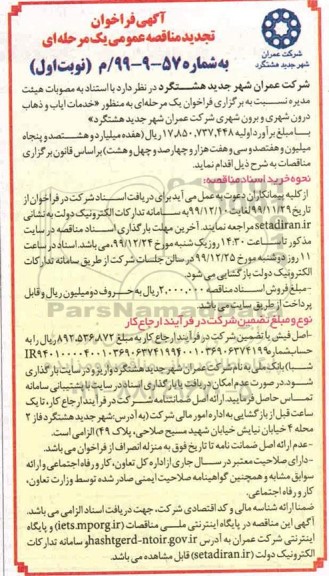 آگهی فراخوان
تجدید مناقصه عمومی یک مرحله‌ای
به شماره ۵۷-۹-۹۹/م (نوبت اول)
شرکت عمران
شهر جدید هشتگرد
شرکت عمران شهر جدید هشتگرد در نظر دارد با استناد به مصوبات هیئت
مدیره نسبت به برگزاری فراخوان یک مرحله‌ای به منظور «خدمات ایاب و ذهاب
درون شهری و برون شهری شرکت عمران شهر جدید هشتگرد»
با مبلغ برآورد اولیه ۱۷,۸۵۰,۷۳۷,۴۴۸ ریال (هفده میلیارد و هشتصد و پنجاه
میلیون و هفتصد و سی و هفت هزار و چهارصد و چهل و هشت) بر اساس قانون برگزاری
مناقصات به شرح ذیل اقدام نماید.
نحوه خرید اسناد مناقصه:
از کلیه پیمانکاران دعوت به عمل می آید برای دریافت اسناد شرکت در فراخوان از
تاریخ ۹۹/۱۱/۲۹ لغایت ۹۹/۱۲/۱۰ به سامانه تدارکات الکترونیک دولت به نشانی
setadiran.ir مراجعه نمایند. آخرین مهلت بارگذاری اسناد مناقصه در سایت
مذکور تا ساعت ۱۴:۳۰ روز یک شنبه مورخ ۹۹/۱۲/۲۴ می باشد. اسناد در ساعت
۱۱ روز دوشنبه مورخ ۹۹/۱۲/۲۵ در سالن جلسات شرکت از طریق سامانه تدارکات
الکترونیک دولت بازگشایی می شود.
-مبلغ فروش اسناد مناقصه ۲,۰۰۰,۰۰۰ ریال به حروف دو میلیون ریال و قابل
پرداخت از طریق سایت می باشد.
نوع و مبلغ تضمین شرکت در فرآیند ارجاع کار
-اصل فیش یا تضمین شرکت در فرآیند ارجاع کار به مبلغ ۸۹۲,۵۳۶,۸۷۲ ریال را به
حساب شماره
شبا) بانک ملی به نام شرکت عمران شهر جدید هشتگرد واریز و در سایت بارگذاری
شود. در صورت عدم امکان دریافت یا بارگذاری اسناد در سایت با پشتیبانی سامانه
تماس حاصل فرمایید. ارائه اصل ضمانتنامه شرکت در فرآیند ارجاع کار، تا یک
ساعت قبل از بازگشایی به اداره امور مالی شرکت (به آدرس: شهر جدید هشتگرد فاز ۲
محله ۴ خیابان نیایش خیابان شهید مسیح صلاحی، پلاک ۴۹) الزامی است.
-عدم ارائه اصل ضمانت نامه تا تاریخ فوق به منزله انصراف از فراخوان می باشد.
-دارای صلاحیت معتبر در سال جاری از اداره کل تعاون، کار و رفاه اجتماعی و ارائه
سوابق مشابه و همچنین گواهینامه صلاحیت ایمنی صادر شده توسط وزارت تعاون،
کار و رفاه اجتماعی.
ضمنا ارائه شناسه ملی و کد اقتصادی شرکت، جهت دریافت اسناد الزامی می باشد.
آگهی این مناقصه در پایگاه اینترنتی ملی مناقصات (iets.mporg.ir) و پایگاه
اینترنتی شرکت عمران به آدرس hashtgerd-ntoir.gov.ir و سامانه تدارکات
الکترونیک دولت (setadiran.ir) قابل مشاهده می باشد.